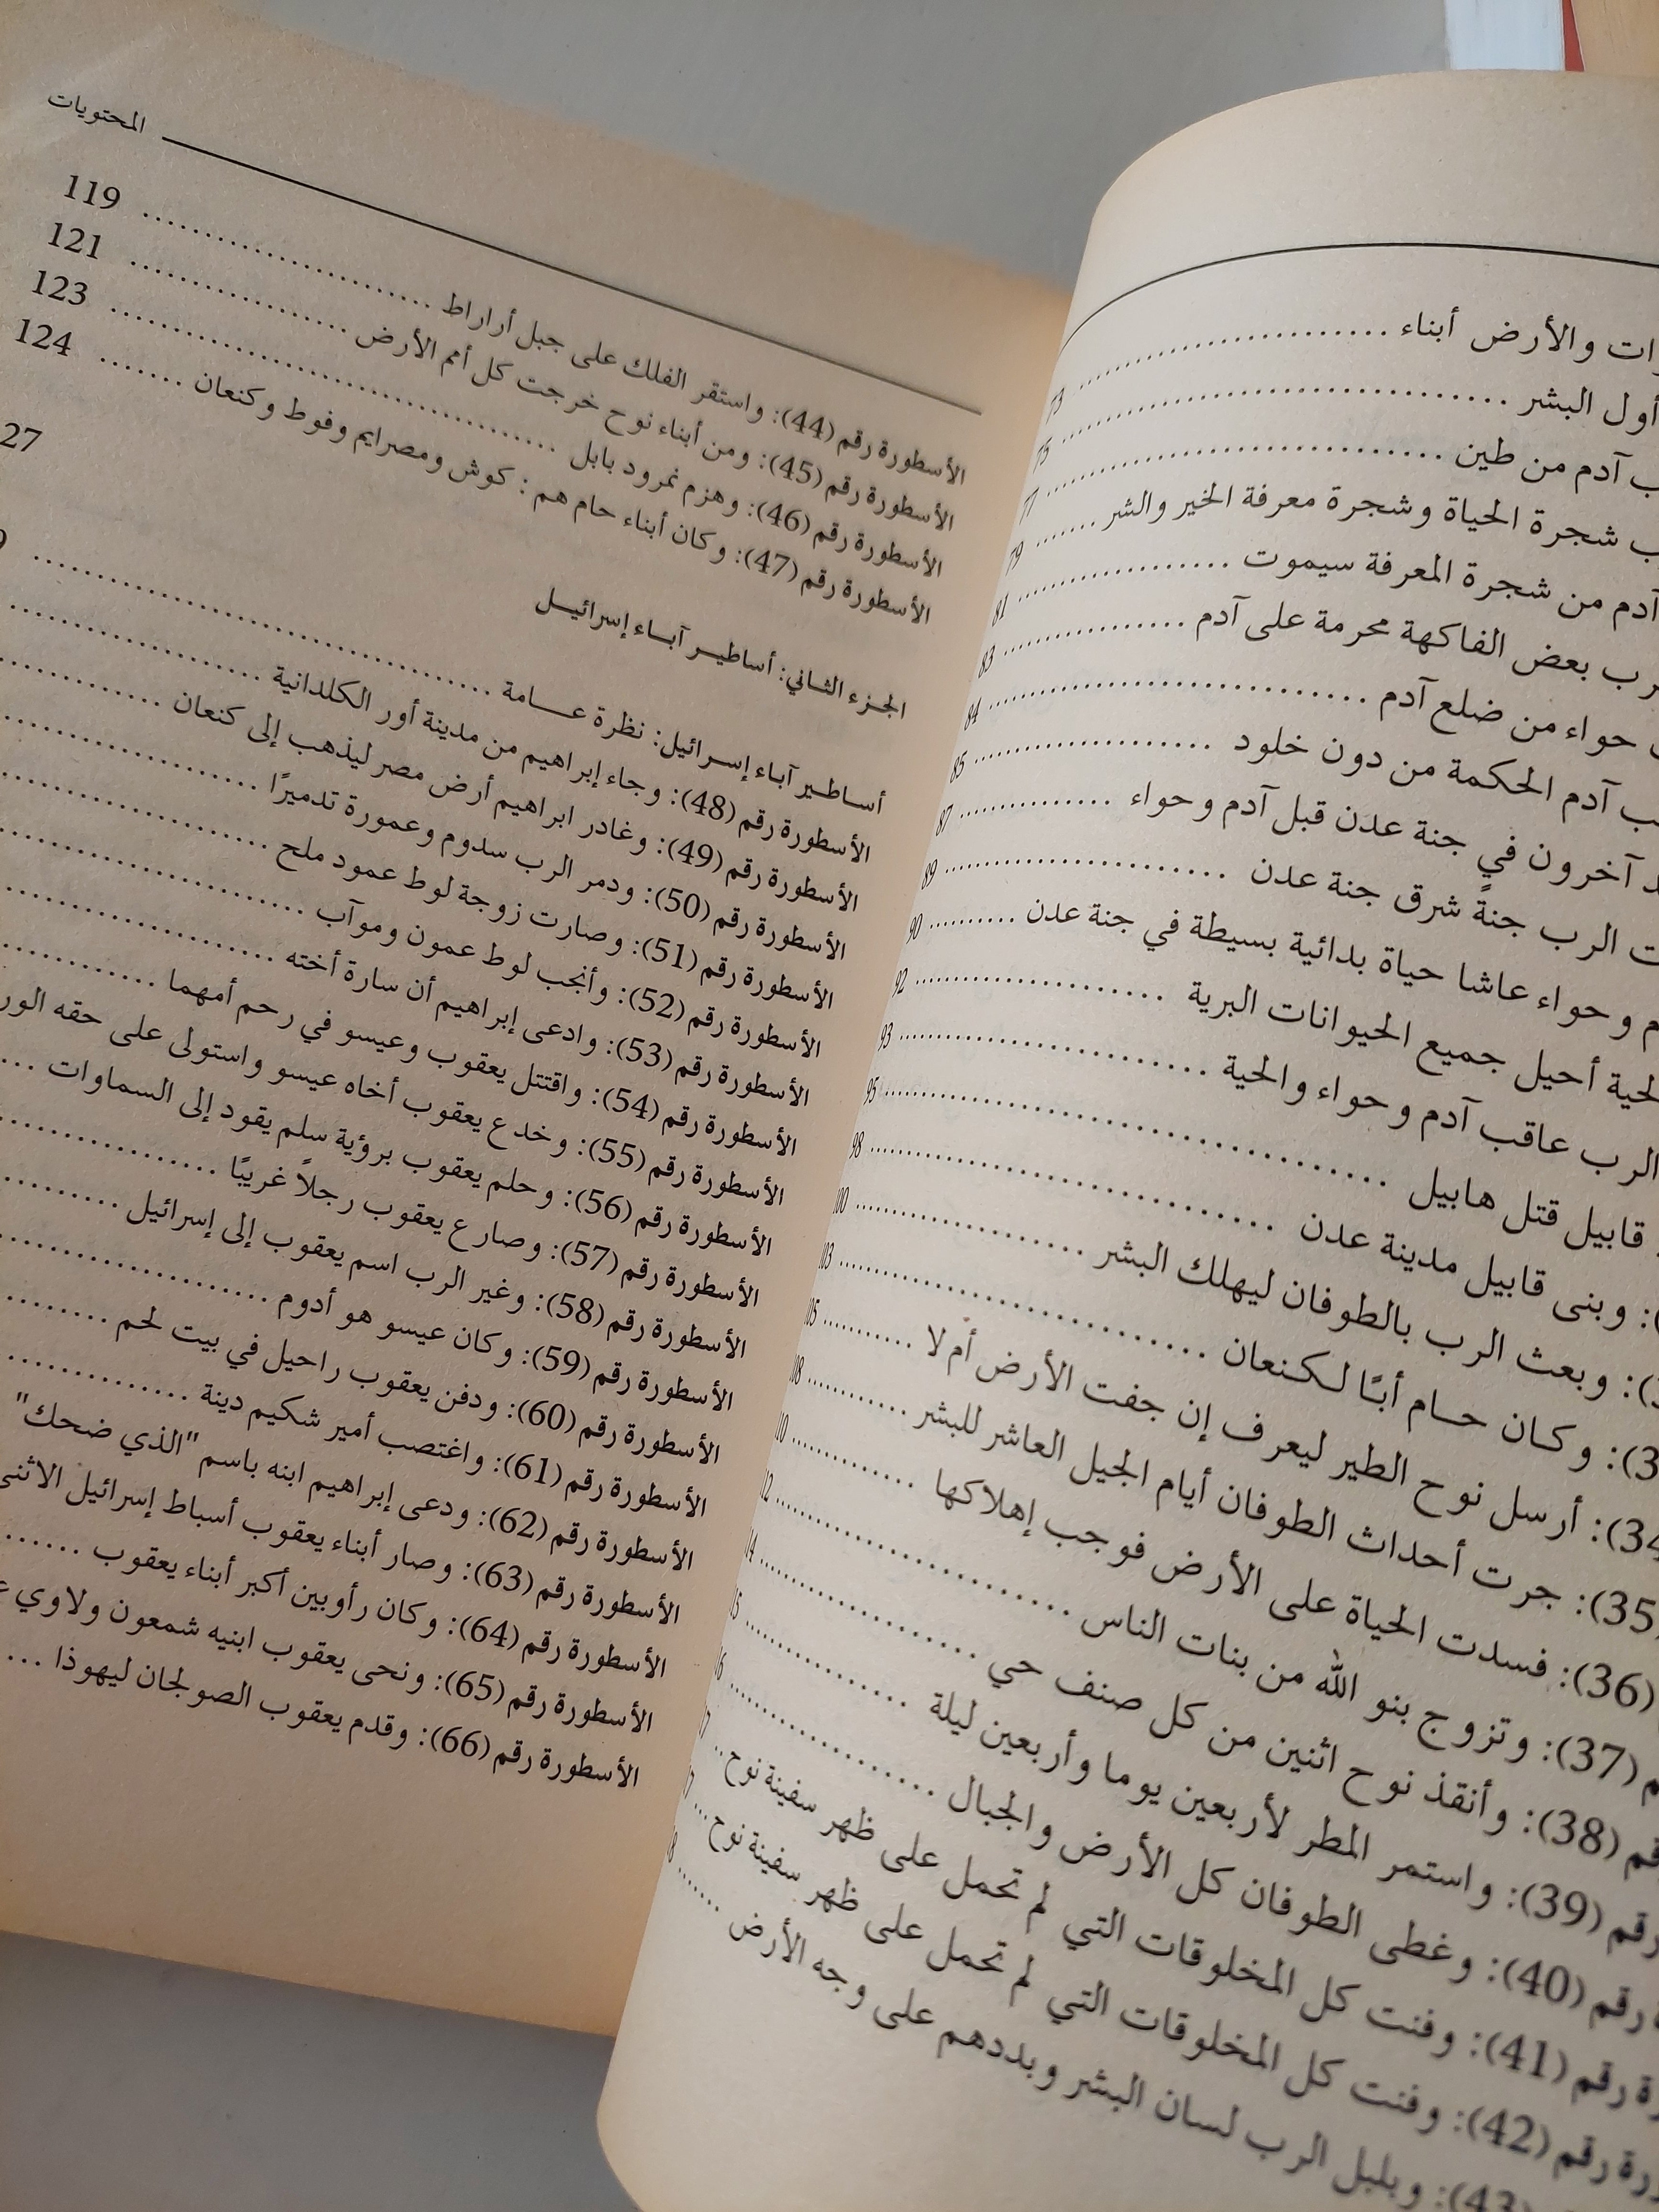 ات والأرض أبناء ........................ 73
أول البشر ........................ 75
آدم من طين ........................ 77
شجرة الحياة وشجرة معرفة الخير والشر ...... 79
آدم من شجرة المعرفة سيموت ........................ 81
رب بعض الفاكهة محرمة على آدم ........................ 83
حواء من ضلع آدم ........................ 84
آدم الحكمة من دون خلود ........................ 85
آخرون في جنة عدن قبل آدم وحواء ............... 87
ت الرب جنةً شرق جنة عدن ........................ 89
م وحواء عاشا حياة بدائية بسيطة في جنة عدن ......... 90
لحية أحيل جميع الحيوانات البرية ........................ 92
الرب عاقب آدم وحواء والحية ........................ 93
قابيل قتل هابيل ........................ 95
: وبنى قابيل مدينة عدن ........................ 98
): وبعث الرب بالطوفان ليهلك البشر ........................ 100
): وكان حام أبًا لكنعان ........................ 103
34): أرسل نوح الطير ليعرف إن جفت الأرض أم لا ........... 105
35): جرت أحداث الطوفان أيام الجيل العاشر للبشر ........... 108
(36): فسدت الحياة على الأرض فوجب إهلاكها .............. 110
م (37): وتزوج بنو الله من بنات الناس ........................ 112
قم (38): وأنقذ نوح اثنين من كل صنف حي .................. 14
رقم (39): واستمر المطر لأربعين يوما وأربعين ليلة .............. 15
رقم (40): وغطى الطوفان كل الأرض والجبال .................. 16
ة رقم (41): وفنت كل المخلوقات التي لم تحمل على ظهر سفينة نوح .. 17
رة رقم (42): وفنت كل المخلوقات التي لم تحمل على ظهر سفينة نوح ... 17
(43): وبلبل الرب لسان البشر وبددهم على وجه الأرض ....... 8
المحتويات
الأسطورة رقم (44): واستقر الفلك على جبل أراراط ........................ 119
الأسطورة رقم (45): ومن أبناء نوح خرجت كل أمم الأرض .................. 121
الأسطورة رقم (46): وهزم نمرود بابل ........................ 123
الأسطورة رقم (47): وكان أبناء حام هم: كوش ومصرايم وفوط وكنعان ....... 124
الجزء الثاني: أساطير آباء إسرائيل 27
أساطير آباء إسرائيل: نظرة عامة ........................ 9
الأسطورة رقم (48): وجاء إبراهيم من مدينة أور الكلدانية ........................
الأسطورة رقم (49): وغادر ابراهيم أرض مصر ليذهب إلى كنعان ...............
الأسطورة رقم (50): ودمر الرب سدوم وعمورة تدميرًا ........................
الأسطورة رقم (51): وصارت زوجة لوط عمود ملح ........................
الأسطورة رقم (52): وأنجب لوط عمون وموآب ........................
الأسطورة رقم (53): وادعى إبراهيم أن سارة أخته ........................
الأسطورة رقم (54): واقتتل يعقوب وعيسو في رحم أمهما ...............
الأسطورة رقم (55): وخدع يعقوب أخاه عيسو واستولى على حقه الور
الأسطورة رقم (56): وحلم يعقوب برؤية سلم يقود إلى السماوات ...
الأسطورة رقم (57): وصارع يعقوب رجلاً غريبًا ..................
الأسطورة رقم (58): وغير الرب اسم يعقوب إلى إسرائيل .........
الأسطورة رقم (59): وكان عيسو هو أدوم ..................
الأسطورة رقم (60): ودفن يعقوب راحيل في بيت لحم ........
الأسطورة رقم (61): واغتصب أمير شكيم دينة ..............
الأسطورة رقم (62): ودعى إبراهيم ابنه باسم "الذي ضحك"
الأسطورة رقم (63): وصار أبناء يعقوب أسباط إسرائيل الاثنى
الأسطورة رقم (64): وكان رأوبين أكبر أبناء يعقوب ......
الأسطورة رقم (65): ونحى يعقوب ابنيه شمعون ولاوي
الأسطورة رقم (66): وقدم يعقوب الصولجان ليهوذا ...